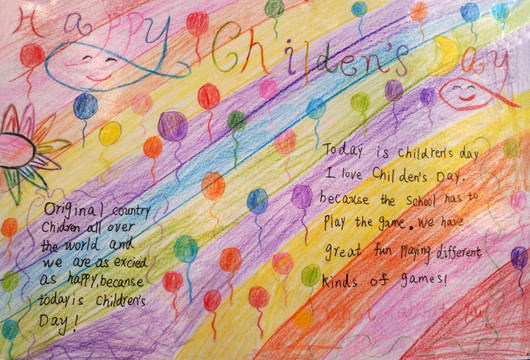 Happy Childen's Day
Original country
Children all over
the world and
we are as excied
as happy, because
today is children's
Day!
Today is children's day
I love Childen's Day.
because the school has to
play the game. We have
great fun playing different
kinds of games!
What about you